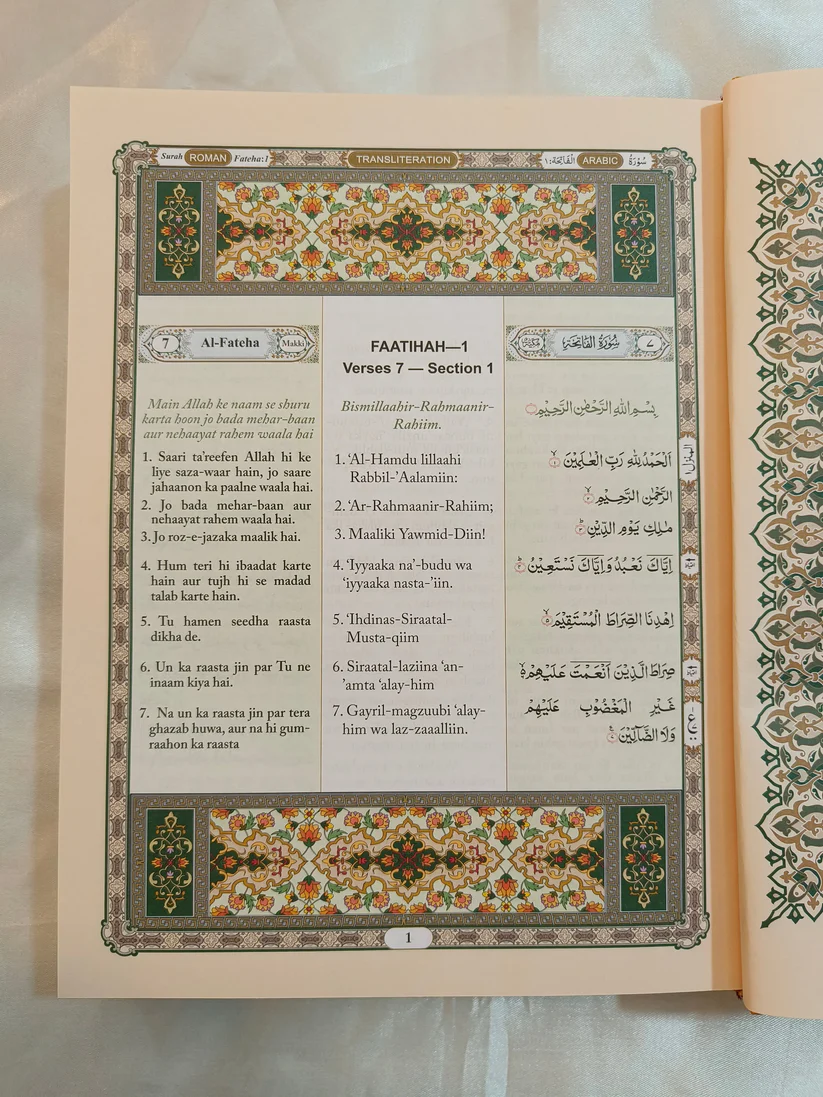 Surah ROMAN Fateha:1
TRANSLITERATION
سُوْرَةُ ARABIC الْفَاتِحَة:١
7 Al-Fateha Makki
Main Allah ke naam se shuru
karta hoon jo bada mehar-baan
aur nehaayat rahem waala hai
1. Saari ta'reefen Allah hi ke
liye saza-waar hain, jo saare
jahaanon ka paalne waala hai.
2. Jo bada mehar-baan aur
nehaayat rahem waala hai.
3. Jo roz-e-jazaka maalik hai.
4. Hum teri hi ibaadat karte
hain aur tujh hi se madad
talab karte hain.
5. Tu hamen seedha raasta
dikha de.
6. Un ka raasta jin par Tu ne
inaam kiya hai.
7. Na un ka raasta jin par tera
ghazab huwa, aur na hi gum-
raahon ka raasta
FAATIHAH—1
Verses 7 — Section 1
Bismillaahir-Rahmaanir-
Rahiim.
1. ‘Al-Hamdu lillaahi
Rabbil-’Aalamiin:
2. ‘Ar-Rahmaanir-Rahiim;
3. Maaliki Yawmid-Diin!
4. ‘Iyyaaka na’-budu wa
‘iyyaaka nasta-’iin.
5. ‘Ihdinas-Siraatal-
Musta-qiim
6. Siraatal-laziina ‘an-
’amta ‘alay-him
7. Gayril-magzuubi ‘alay-
him wa laz-zaaalliin.
٧ سُوْرَةُ الْفَاتِحَةِ مَكِّيَّةٌ
بِسْمِ اللهِ الرَّحْمٰنِ الرَّحِيْمِ
اَلْحَمْدُ لِلّٰهِ رَبِّ الْعٰلَمِيْنَ ۙ١
الرَّحْمٰنِ الرَّحِيْمِ ۙ٢
مٰلِكِ يَوْمِ الدِّيْنِ ؕ٣
اِيَّاكَ نَعْبُدُ وَاِيَّاكَ نَسْتَعِيْنُ ؕ٤
اِهْدِنَا الصِّرَاطَ الْمُسْتَقِيْمَ ۙ٥
صِرَاطَ الَّذِيْنَ اَنْعَمْتَ عَلَيْهِمْ ۙ٦
غَيْرِ الْمَغْضُوْبِ عَلَيْهِمْ
وَلَا الضَّآلِّيْنَ ۧ٧
المنزل ١
ع
1